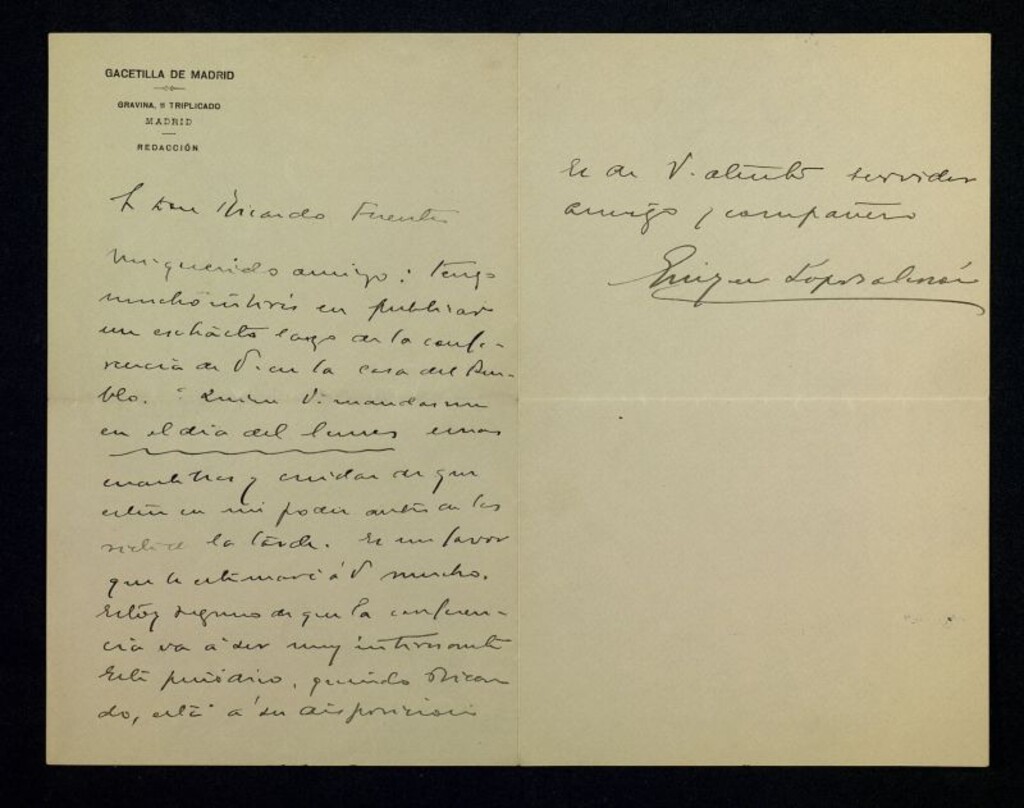 GACETILLA DE MADRID
GRAVINA, 11 TRIPLICADO
MADRID
REDACCIÓN
Don Ricardo Fuente
Mi querido amigo: tengo
mucho interés en publicar
un extracto largo de la confe-
rencia de V. en la casa del Pue-
blo. ¿Quiere V. mandarme
en el dia del lunes unas
cuartillas y cuidar de que
estén en mi poder antes de las
siete de la tarde. Es un favor
que le estimaré á V mucho.
Estoy seguro de que la conferen-
cia va á ser muy interesante
Este periódico, querido Ricar
do, está á su disposicion
Es de V. atento servidor
amigo y compañero
Enrique